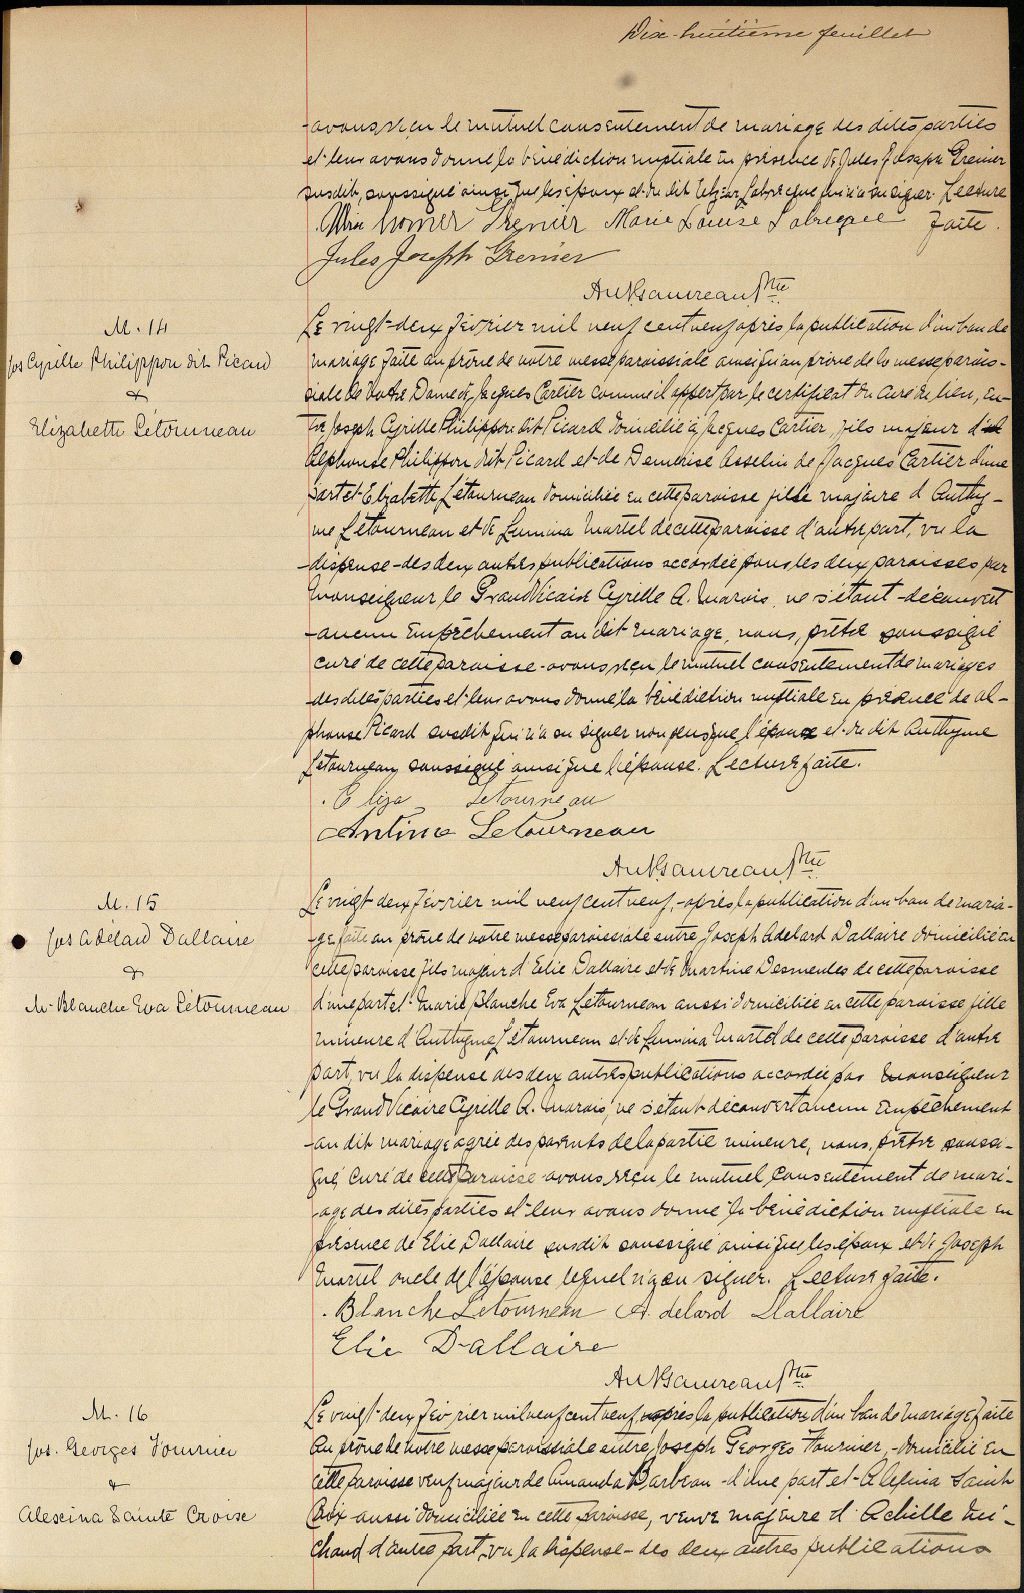 Dix-huitième feuillet
avons reçu le mutuel consentement de mariage des dites parties
et leur avons donné la bénédiction nuptiale en présence de Jules Joseph Grenier
susdit, soussigné ainsi que les époux et du dit Labrecque qui n'a su signer. Lecture
Homer Grenier Marie Louise Labrecque faite.
Jules Joseph Grenier
Ptre
M. 14
Jos Cyrille Philippon dit Picard
&
Elizabeth Létourneau
Le vingt-deux février mil neuf cent neuf après la publication d'un ban de
mariage faite au prône de notre messe paroissiale ainsi qu'au prône de la messe parois-
siale de Notre Dame de Jacques Cartier comme il appert par le certificat du curé du lieu, en-
tre Joseph Cyrille Philippon dit Picard domicilié à Jacques Cartier fils majeur d'
Alphonse Philippon dit Picard et de Demerise Asselin de Jacques Cartier d'une
part et Elizabeth Létourneau domiciliée en cette paroisse fille majeure d'Anthy-
me Létourneau et de Lumina Martel de cette paroisse d'autre part, vu la
dispense des deux autres publications accordée pour les deux paroisses par
Monseigneur le Grand Vicaire Cyrille A. Marois, ne s'étant découvert
aucun empêchement au dit mariage, nous, prêtre soussigné
curé de cette paroisse avons reçu le mutuel consentement de mariages
des dites parties et leur avons donné la bénédiction nuptiale en présence de Al-
phonse Picard susdit qui n'a su signer non plus que l'époux et du dit Anthyme
Létourneau soussigné ainsi que l'épouse. Lecture faite.
Eliza Letourneau
Antime Letourneau
Ptre
M. 15
Jos Adélard Dallaire
&
M. Blanche Eva Létourneau
Le vingt-deux février mil neuf cent neuf, après la publication d'un ban de maria-
ge faite au prône de notre messe paroissiale entre Joseph Adelard Dallaire domicilié en
cette paroisse fils majeur d'Elie Dallaire et de Martine Desmeules de cette paroisse
d'une part et Marie Blanche Eva Letourneau aussi domiciliée en cette paroisse fille
mineure d'Anthyme Létourneau et de Lumina Martel de cette paroisse d'autre
part, vu la dispense des deux autres publications accordée par Monseigneur
le Grand Vicaire Cyrille A. Marois, ne s'étant découvert aucun empêchement
au dit mariage agréé des parents de la partie mineure, nous, prêtre soussi-
gné, curé de cette paroisse avons reçu le mutuel consentement de mari-
age des dites parties et leur avons donné la bénédiction nuptiale en
présence de Elie Dallaire susdit soussigné ainsi que les époux et de Joseph
Martel oncle de l'épouse lequel n'a su signer. Lecture faite.
Blanche Letourneau Adelard Dallaire
Elie Dallaire
Ptre
M. 16
Jos. Georges Fournier
&
Alexina Sainte Croix
Le vingt-deux février mil neuf cent neuf après la publication d'un ban de mariage faite
au prône de notre messe paroissiale entre Joseph Georges Fournier, domicilié en
cette paroisse veuf majeur de Amanda Barbeau d'une part et Alexina Sainte
Croix aussi domiciliée en cette paroisse, veuve majeure d'Achille Mi-
chaud d'autre part, vu la dispense des deux autres publications